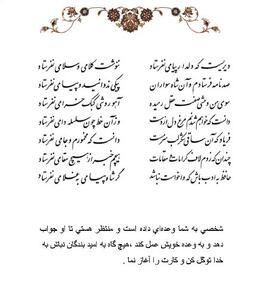 دیریست که دلدار پیامی نفرستاد ننوشت کلامی و سلامی نفرستاد
صد نامه فرستادم و آن شاه سواران پیکی ندوانید و پیامی نفرستاد
سوی من وحشی صفت عقل رمیده آهو روشی کبک خرامی نفرستاد
دانست که خواهد شدنم مرغ دل از دست وز آن خط چون سلسله دامی نفرستاد
فریاد که آن ساقی شکر لب سرمست دانست که مخمورم و جامی نفرستاد
چندان که زدم لاف کرامات و مقامات هیچم خبر از هیچ مقامی نفرستاد
حافظ به ادب باش که واخواست نباشد گر شاه پیامی به غلامی نفرستاد
شخصی به شما وعده‌ای داده است و منتظر هستی تا او جواب
دهد و به وعده خویش عمل کند ،هیچ گاه به امید بندگان نباش به
خدا توکل کن و کارت را آغاز نما .